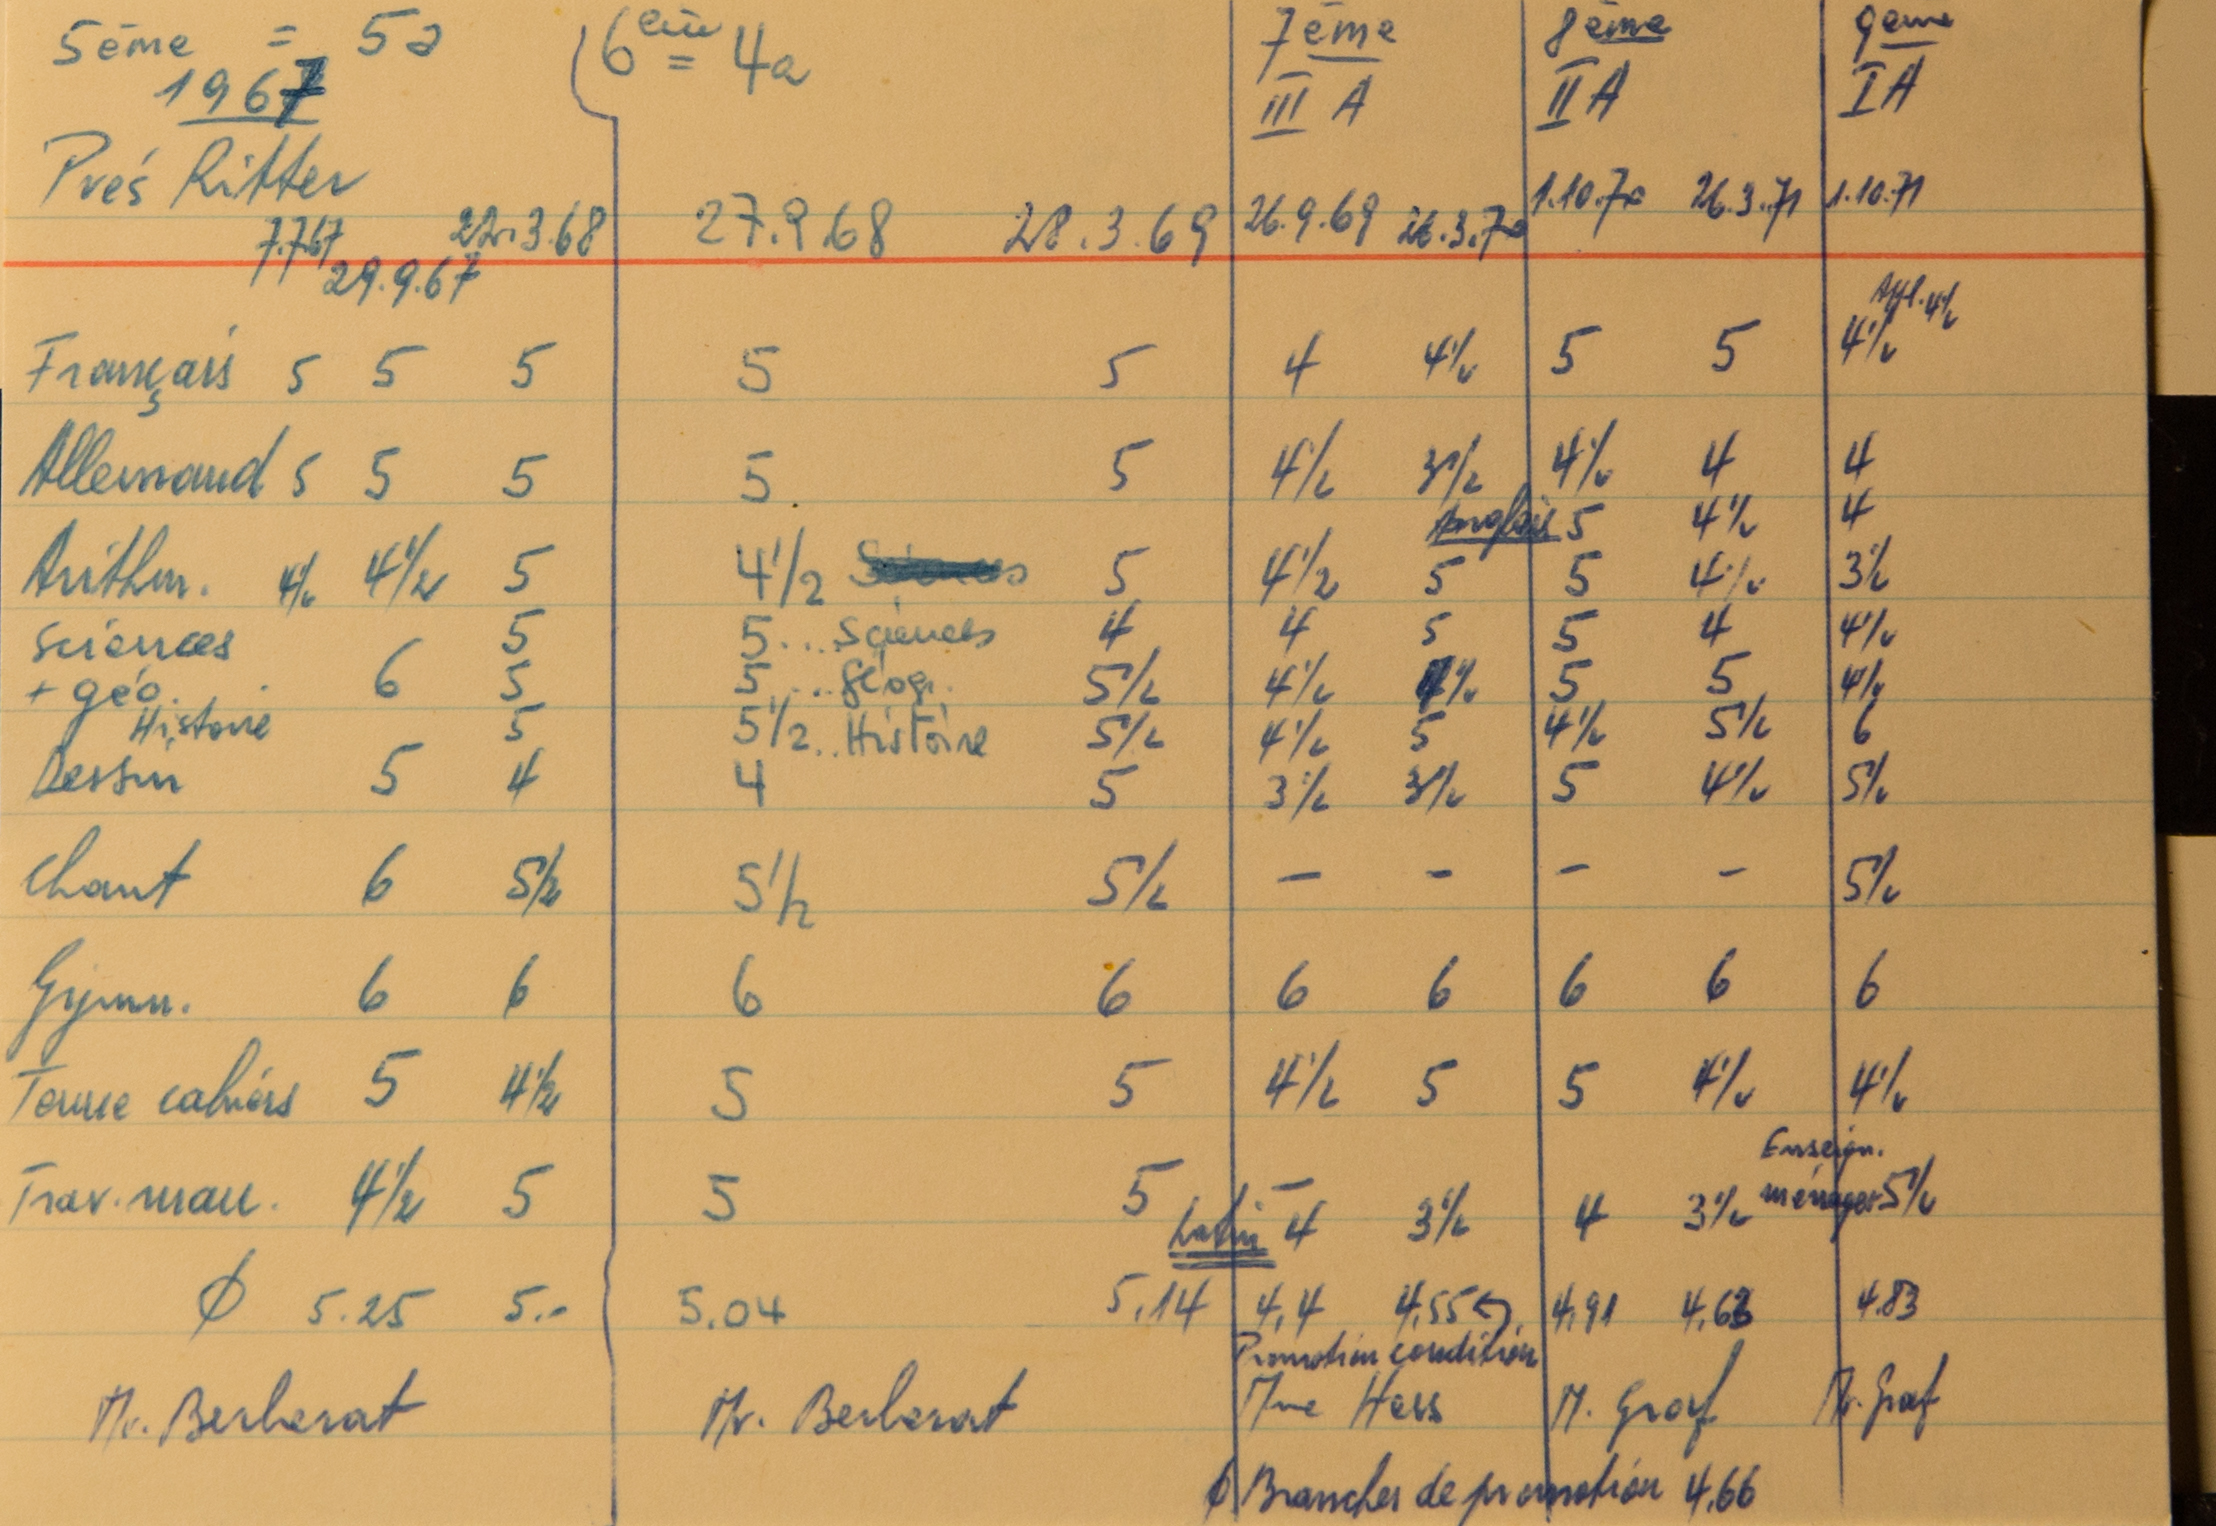 5ème = 5a 6ème = 4a 7ème 8ème 9ème
1967 III A II A I A
Prés Ritter
7.7.67 29.9.67 22.3.68 27.9.68 28.3.69 26.9.69 26.3.70 1.10.70 26.3.71 1.10.71
4½
Français 5 5 5 5 5 4 4½ 5 5 4½
Allemand 5 5 5 5 5 4½ 3½ 4½ 4 4
Anglais 5 4½ 4
Arithm. 4½ 4½ 5 4½ 5 4½ 5 5 4½ 3½
Sciences 5 5... Sciences 4 4 5 5 4 4½
+ géo. 6 5 5... géogr. 5½ 4½ 4½ 5 5 4½
Histoire 5 5½.. Histoire 5½ 4½ 5 4½ 5½ 6
Dessin 5 4 4 5 3½ 3½ 5 4½ 5½
Chant 6 5½ 5½ 5½ - - - - 5½
Gymn. 6 6 6 6 6 6 6 6 6
Tenue cahiers 5 4½ 5 5 4½ 5 5 4½ 4½
Enseign.
Trav. man. 4½ 5 5 5 - ménager 5½
Latin 4 3½ 4 3½
Ø 5.25 5.- 5.04 5.14 4.4 4.55 4.91 4.63 4.83
Promotion condition
Mr. Berberat Mr. Berberat Mme Hess M. Graf Mr. Graf
Ø Branches de promotion 4.66